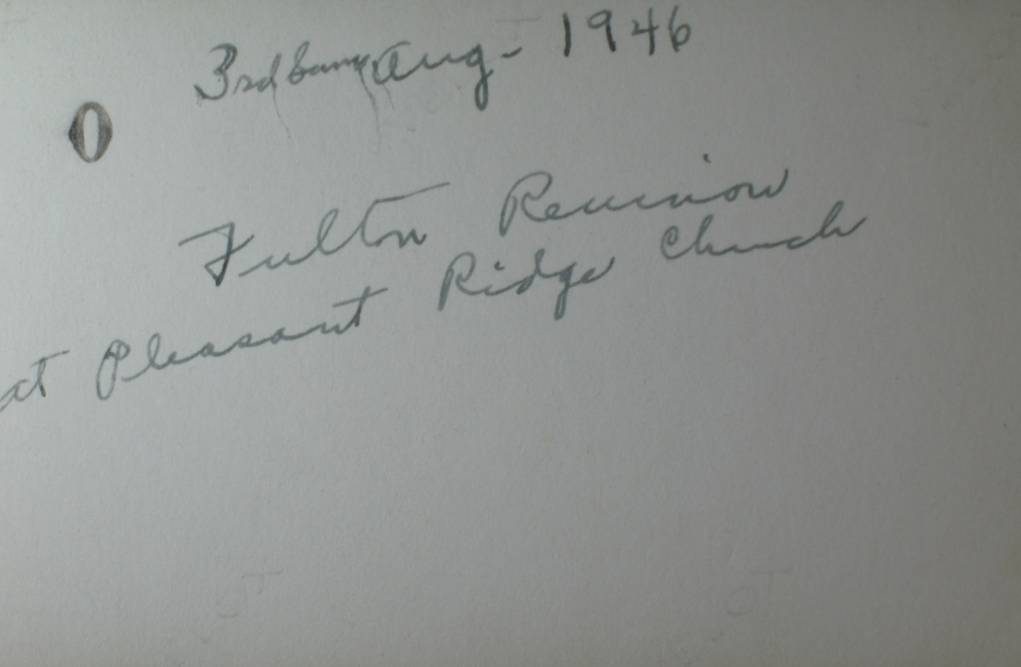 Aug - 1946
0
Fulton Reunion
at Pleasant Ridge Church